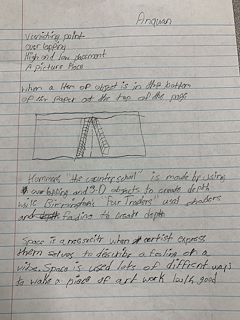 Anquan
Vanishing point
over lapping
High and low placement
A picture Place
when a item or object is in the bottom
of the paper or at the top of the page
Hommers "the country school" is made by using
overlapping and 3-D objects to create depth
while "Four Traders" uses shaders
and fading to create depth
Space is a necessity when artist express
them selves to describe a feeling of a
vibe. Space is used lots of diffrent ways
to make a piece of art work look good